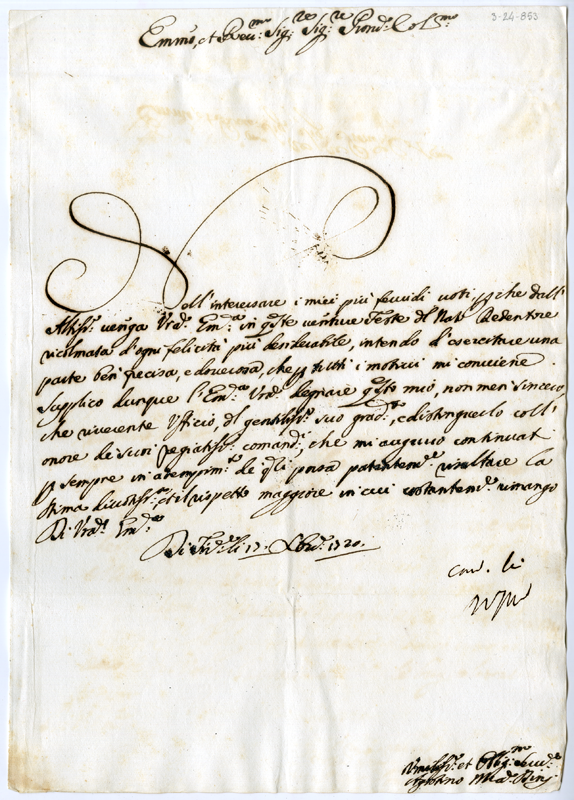 3-24-853
Emmo, et Reu.mo Sig.re Sig.re Pron.e Col.mo
Coll'interessare i miei più feruidi uoti, p che dall'
Altiss.o uenga Vrã Em.a in q.ste uenture Feste del Nato Redentore
ricolmata d'ogni felicità più desiderabile, intendo d'esercitare una
parte ben precisa, e douerosa, che p tutti i motiui mi conuiene.
Supplico dunque l'Em.a Vrã degnare q.sto mio, non men sincero,
che riuerente Ufficio, del gentiliss.o suo grad.to, e distinguerlo coll'
onore de suoi pregiatiss.i comandi, che mi auguro continuati
p sempre in adempim.to de q.li possa patentem.e risultare la
stima diuotiss.a, et il rispetto maggiore in cui costantem.e rimango
Di Vrã Em.a
Di li 17. Xbre. 1720.
Vmiliss.o et Oblig.mo Seru.e